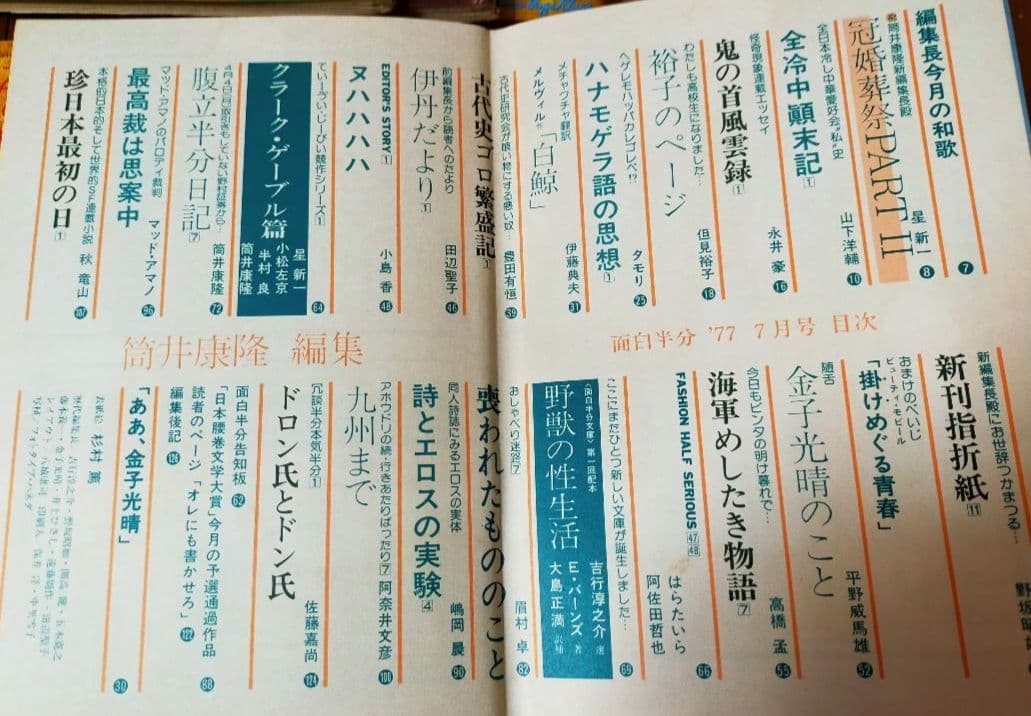 編集長今月の和歌
⑦
祝筒井康隆新編集長殿
冠婚葬祭PARTⅡ
星 新一
⑧
全日本冷し中華愛好会“私”史
全冷中顚末記①
山下洋輔
⑩
怪奇現象連載エッセイ
鬼の首風雲録①
永井 豪
⑯
わたしも高校生になりました…
裕子のページ
但見裕子
⑱
ヘゲレモハッパカレゴレベ!?
ハナモゲラ語の思想①
タモリ
㉕
メチャクチャ翻訳
メルヴィル作「白鯨」
伊藤典夫
㉛
古代史研究会が喰い物にする悪い奴…
古代史ゴロ繁盛記①
豊田有恒
㊴
前編集長から読者へのたより
伊丹だより①
田辺聖子
㊻
EDITOR'S STORY①
ヌハハハハ
小島 香
㊽
てぃーぶい・じーびい競作シリーズ①
クラーク・ゲーブル篇
星 新一
小松左京
半村 良
筒井康隆
64
腹立半分日記⑦
筒井康隆
72
マッド・アマノのパロディ裁判
最高裁は思案中
マッド・アマノ
96
本格的日本的そして世界的SF連載小説
珍日本最初の日①
秋 竜山
107
面白半分 '77 7月号 目次
筒井康隆 編集
新編集長殿にお世辞つかまつる…
新刊指折紙⑪
おまけのぺいじ
ビューティ・モビール
「掛けめぐる青春」
随舌
金子光晴のこと
平野威馬雄
52
今日もビンタの明け暮れで…
海軍めしたき物語⑦
高橋 孟
55
FASHION HALF SERIOUS㊼㊽
はらたいら
阿佐田哲也
66
ここにまたひとつ新しい文庫が誕生しました…
69
〈面白半分文庫〉第一回配本
野獣の性生活
吉行淳之介 選
E・バーンズ 著
大島正満 訳補
おしゃべり迷路⑦
喪われたもののこと
眉村 卓
82
同人詩誌にみるエロスの実体
詩とエロスの実験④
嶋岡 晨
90
アホウドリの続・行きあたりばったり⑦
九州まで
阿奈井文彦
100
冗談半分本気半分①
ドロン氏とドン氏
佐藤嘉尚
124
面白半分告知板 62
「日本腰巻文学大賞」今月の予選通過作品
88
読者のページ「オレにも書かせろ」
122
編集後記 126
「ああ、金子光晴」
30
表紙絵 杉村 篤